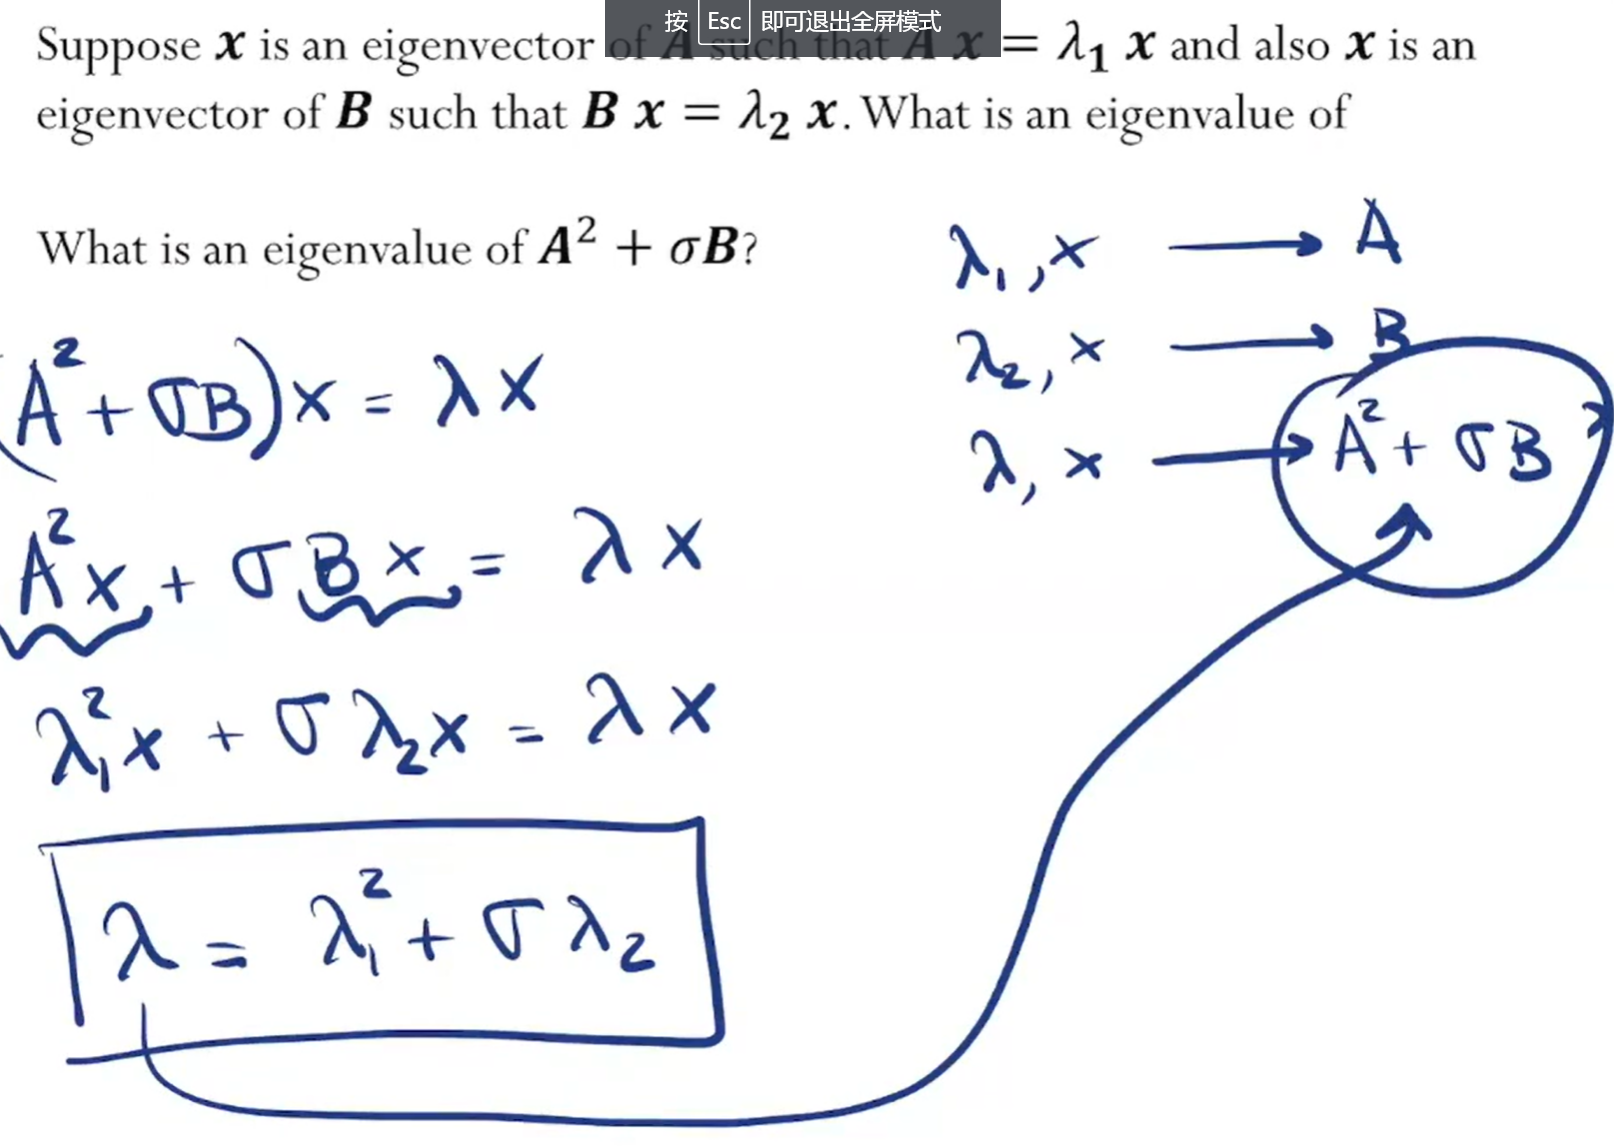 按 Esc 即可退出全屏模式
Suppose x is an eigenvector of A such that A x = λ₁ x and also x is an
eigenvector of B such that B x = λ₂ x. What is an eigenvalue of
What is an eigenvalue of A² + σB?
λ₁, x → A
λ₂, x → B
λ, x → A² + σB
(A² + σB)x = λx
A²x + σBx = λx
λ₁²x + σλ₂x = λx
λ = λ₁² + σλ₂